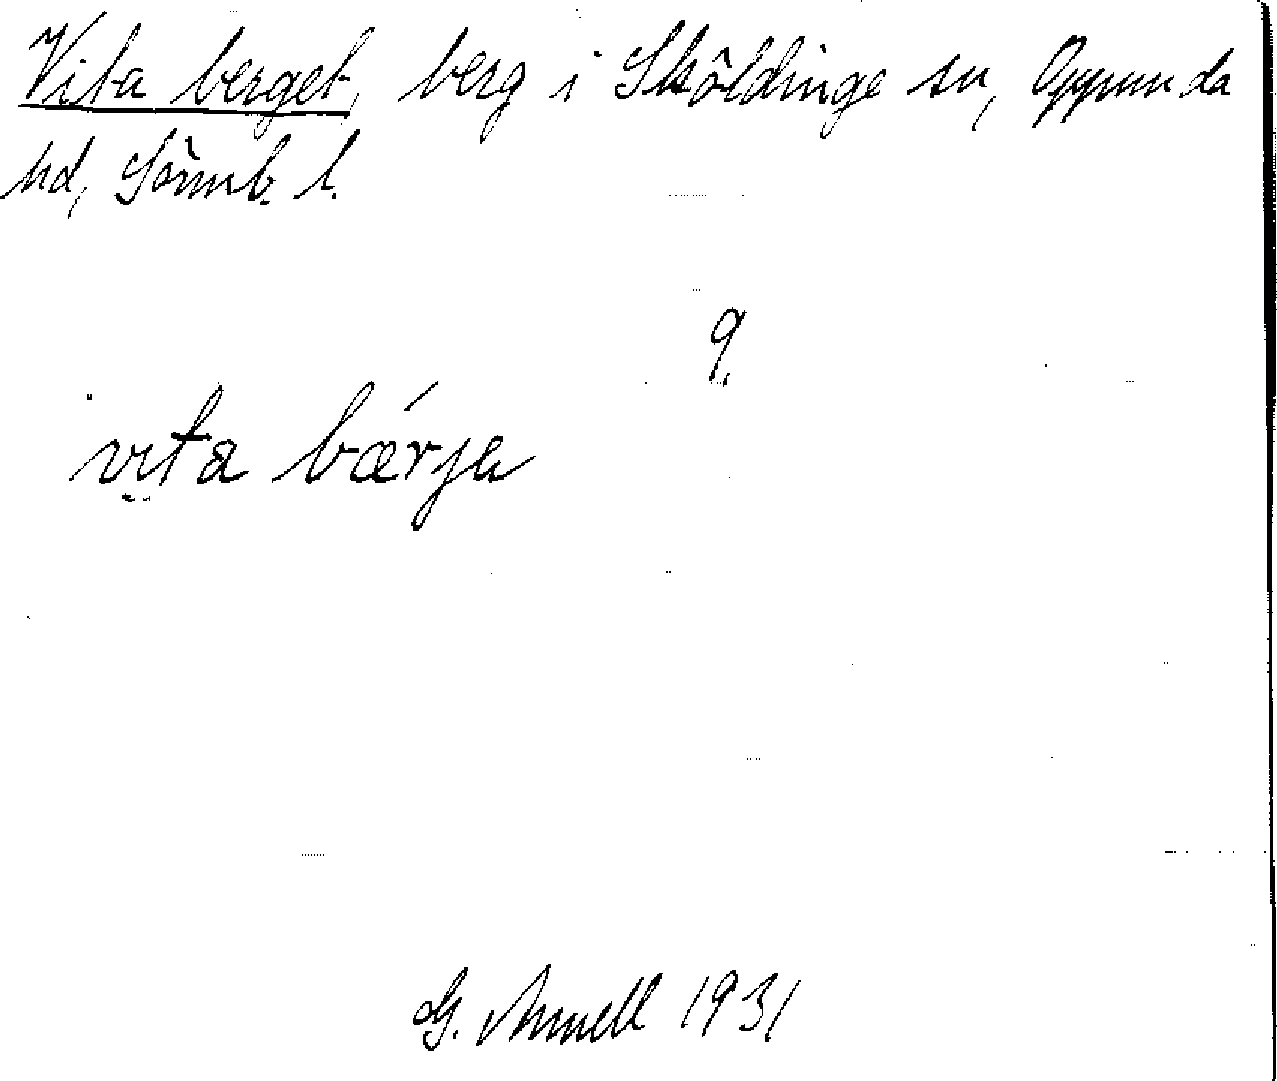 Vita berget, berg i Sköldinge sn, Oppunda
hd, Sörmb. l.
9.
vita bǽrja
G. Annell 1931